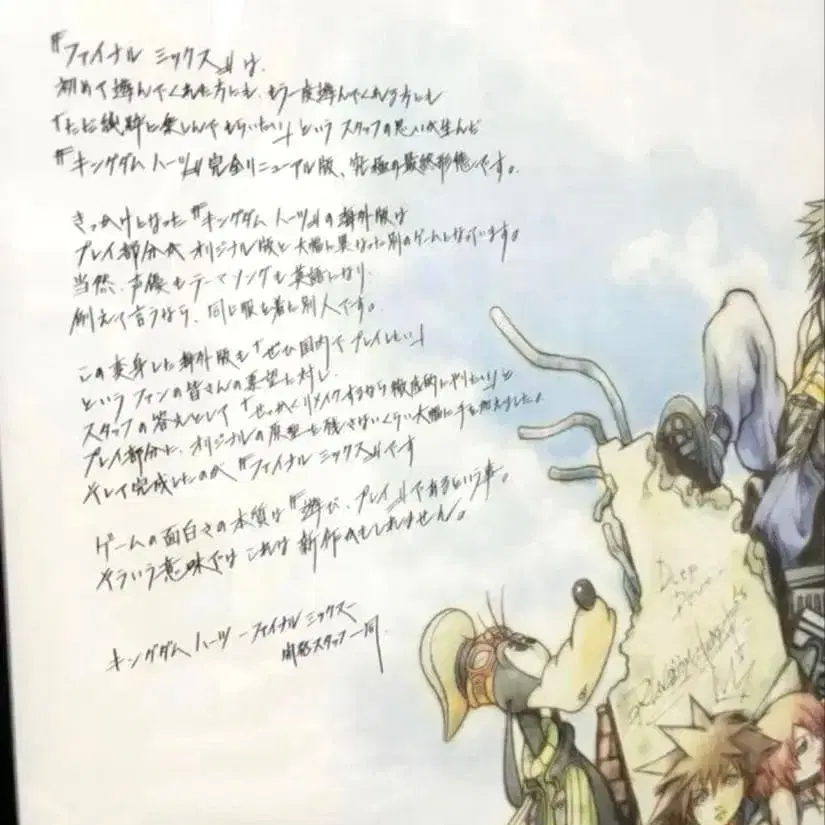 『ファイナル ミックス』は、
初めて遊んでくれた方にも、もう一度遊んでくれる方にも
「ただ純粋に楽しんでもらいたい」という スタッフの思いが生んだ
『キングダム ハーツ』完全リニューアル版、究極の最終形態です。
きっかけとなった『キングダム ハーツ』の海外版は
プレイ部分が オリジナル版と 大幅に異なった別のゲームとなっています。
当然、声優もテーマソングも英語になり、
例えて言うなら、同じ服を着た別人です。
この変身した海外版も「ぜひ国内でプレイしたい」
というファンの皆さんの要望に対し、
スタッフの答えとして「せっかくリメイクするなら徹底的にやりたい」と
プレイ部分に、オリジナルの原型を残さないくらい大幅に手を加えました。
そして完成したのが『ファイナル ミックス』です
ゲームの面白さの本質は『遊び、プレイ』であるという事。
そういう意味では これは 新作かもしれません。
キングダム ハーツ −ファイナル ミックス−
開発スタッフ一同.
Deep